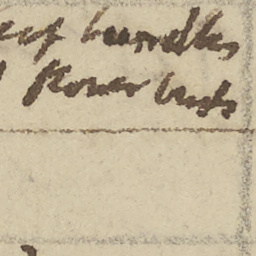 bundles
flower buds